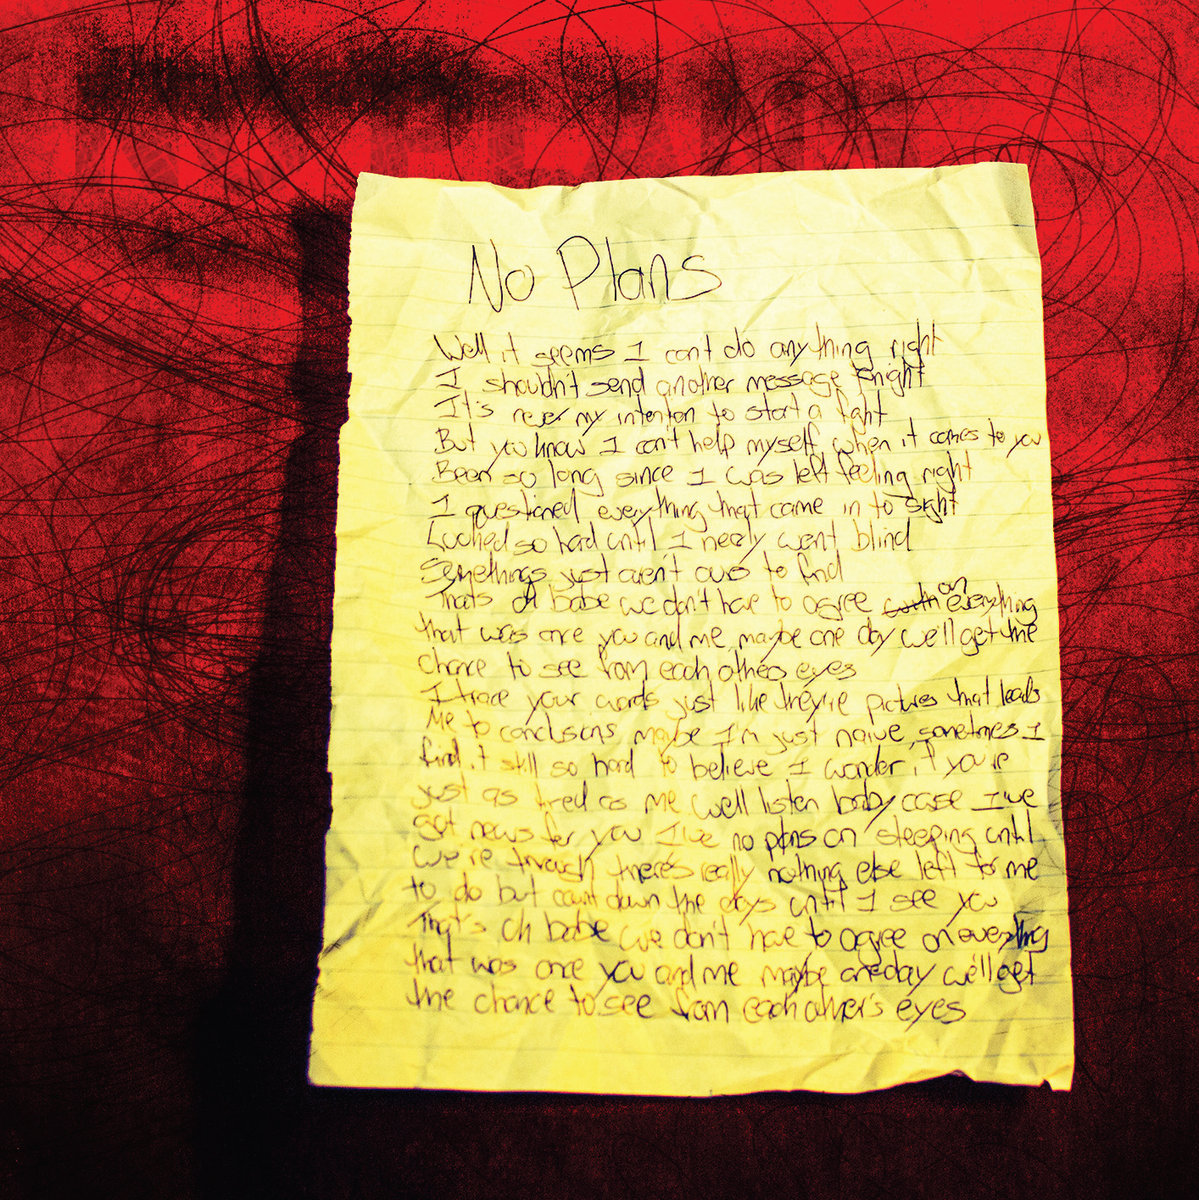 No Plans
Well it seems I can't do anything right
I shouldn't send another message tonight
It's never my intention to start a fight
But you know I can't help myself when it comes to you
Been so long since I was left feeling right
I questioned everything that came in to sight
Looked so hard until I nearly went blind
Somethings just aren't ours to find
Thats oh babe we don't have to agree on everything
that was once you and me, maybe one day we'll get the
chance to see from each others eyes
I trace your words just like they're pictures that leads
Me to conclusions maybe I'm just naive, sometimes I
find it still so hard to believe I wonder if you're
just as tired as me well listen baby case I've
got news for you I've no plans on sleeping until
we're through there's really nothing else left for me
to do but count down the days until I see you
That's oh babe we don't have to agree on everything
that was once you and me maybe one day we'll get
the chance to see from each other's eyes